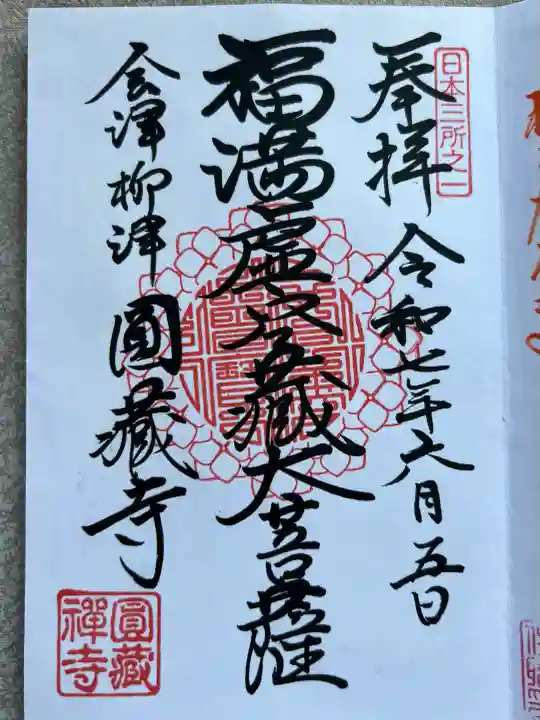 日本三所之一
奉拝 令和七年六月五日
福満虚空蔵大菩薩
会津柳津 圓藏寺
圓藏禪寺